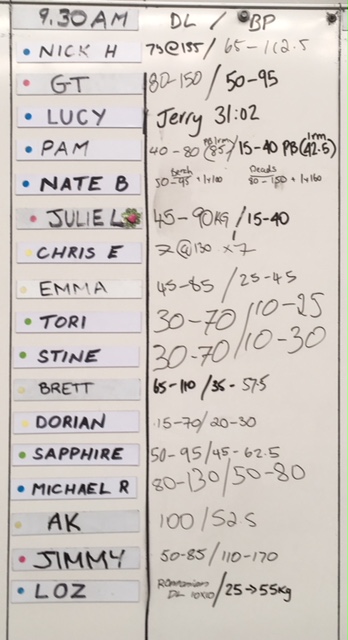 9.30 AM DL / BP
NICK H 7s@135 / 65-112.5
GT 80-150 / 50-95
LUCY Jerry 31:02
PAM 40-80 (PB 1rm 85) / 15-40 PB (1rm 42.5)
NATE B Bench 50-95 + 1x100 Deads 80-150 + 1x160
JULIE L 45-90KG / 15-40
CHRIS E 7@130 x7
EMMA 45-85 / 25-45
TORI 30-70 / 10-25
STINE 30-70 / 10-30
BRETT 65-110 / 35-57.5
DORIAN 15-70 / 20-30
SAPPHIRE 50-95 / 45-62.5
MICHAEL R 80-130 / 50-80
AK 100 / 52.5
JIMMY 50-85 / 110-170
LOZ DL 10x10 / 25→55kg